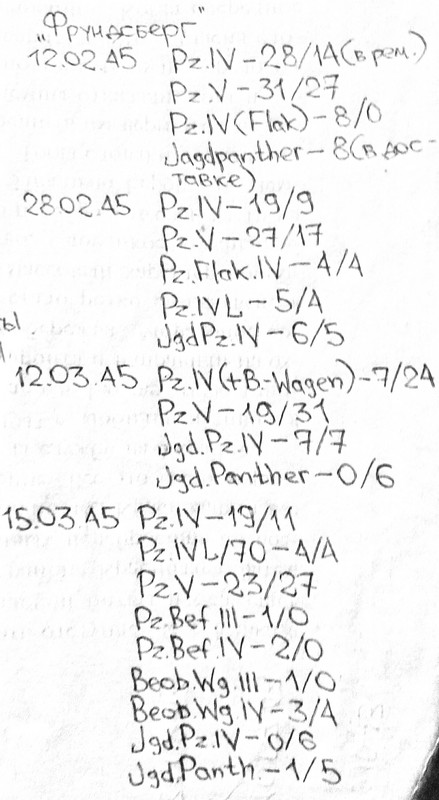 "Фрундсберг"
12.02.45 Pz.IV-28/14(в рем.)
Pz.V-31/27
Pz.IV(Flak)-8/0
Jagdpanther-8(в дос-
тавке)
28.02.45 Pz.IV-19/9
Pz.V-27/17
Pz.Flak.IV-4/4
Pz.IVL-5/4
ты
JgdPz.IV-6/5
12.03.45 Pz.IV(+B.-Wagen)-7/24
Pz.V-19/31
Jgd.Pz.IV-7/7
Jgd.Panther-0/6
15.03.45 Pz.IV-19/11
Pz.IVL/70-4/4
Pz.V-23/27
Pz.Bef.III-1/0
Pz.Bef.IV-2/0
Beob.Wg.III-1/0
Beob.Wg.IV-3/4
Jgd.Pz.IV-0/6
Jgd.Panth.-1/5